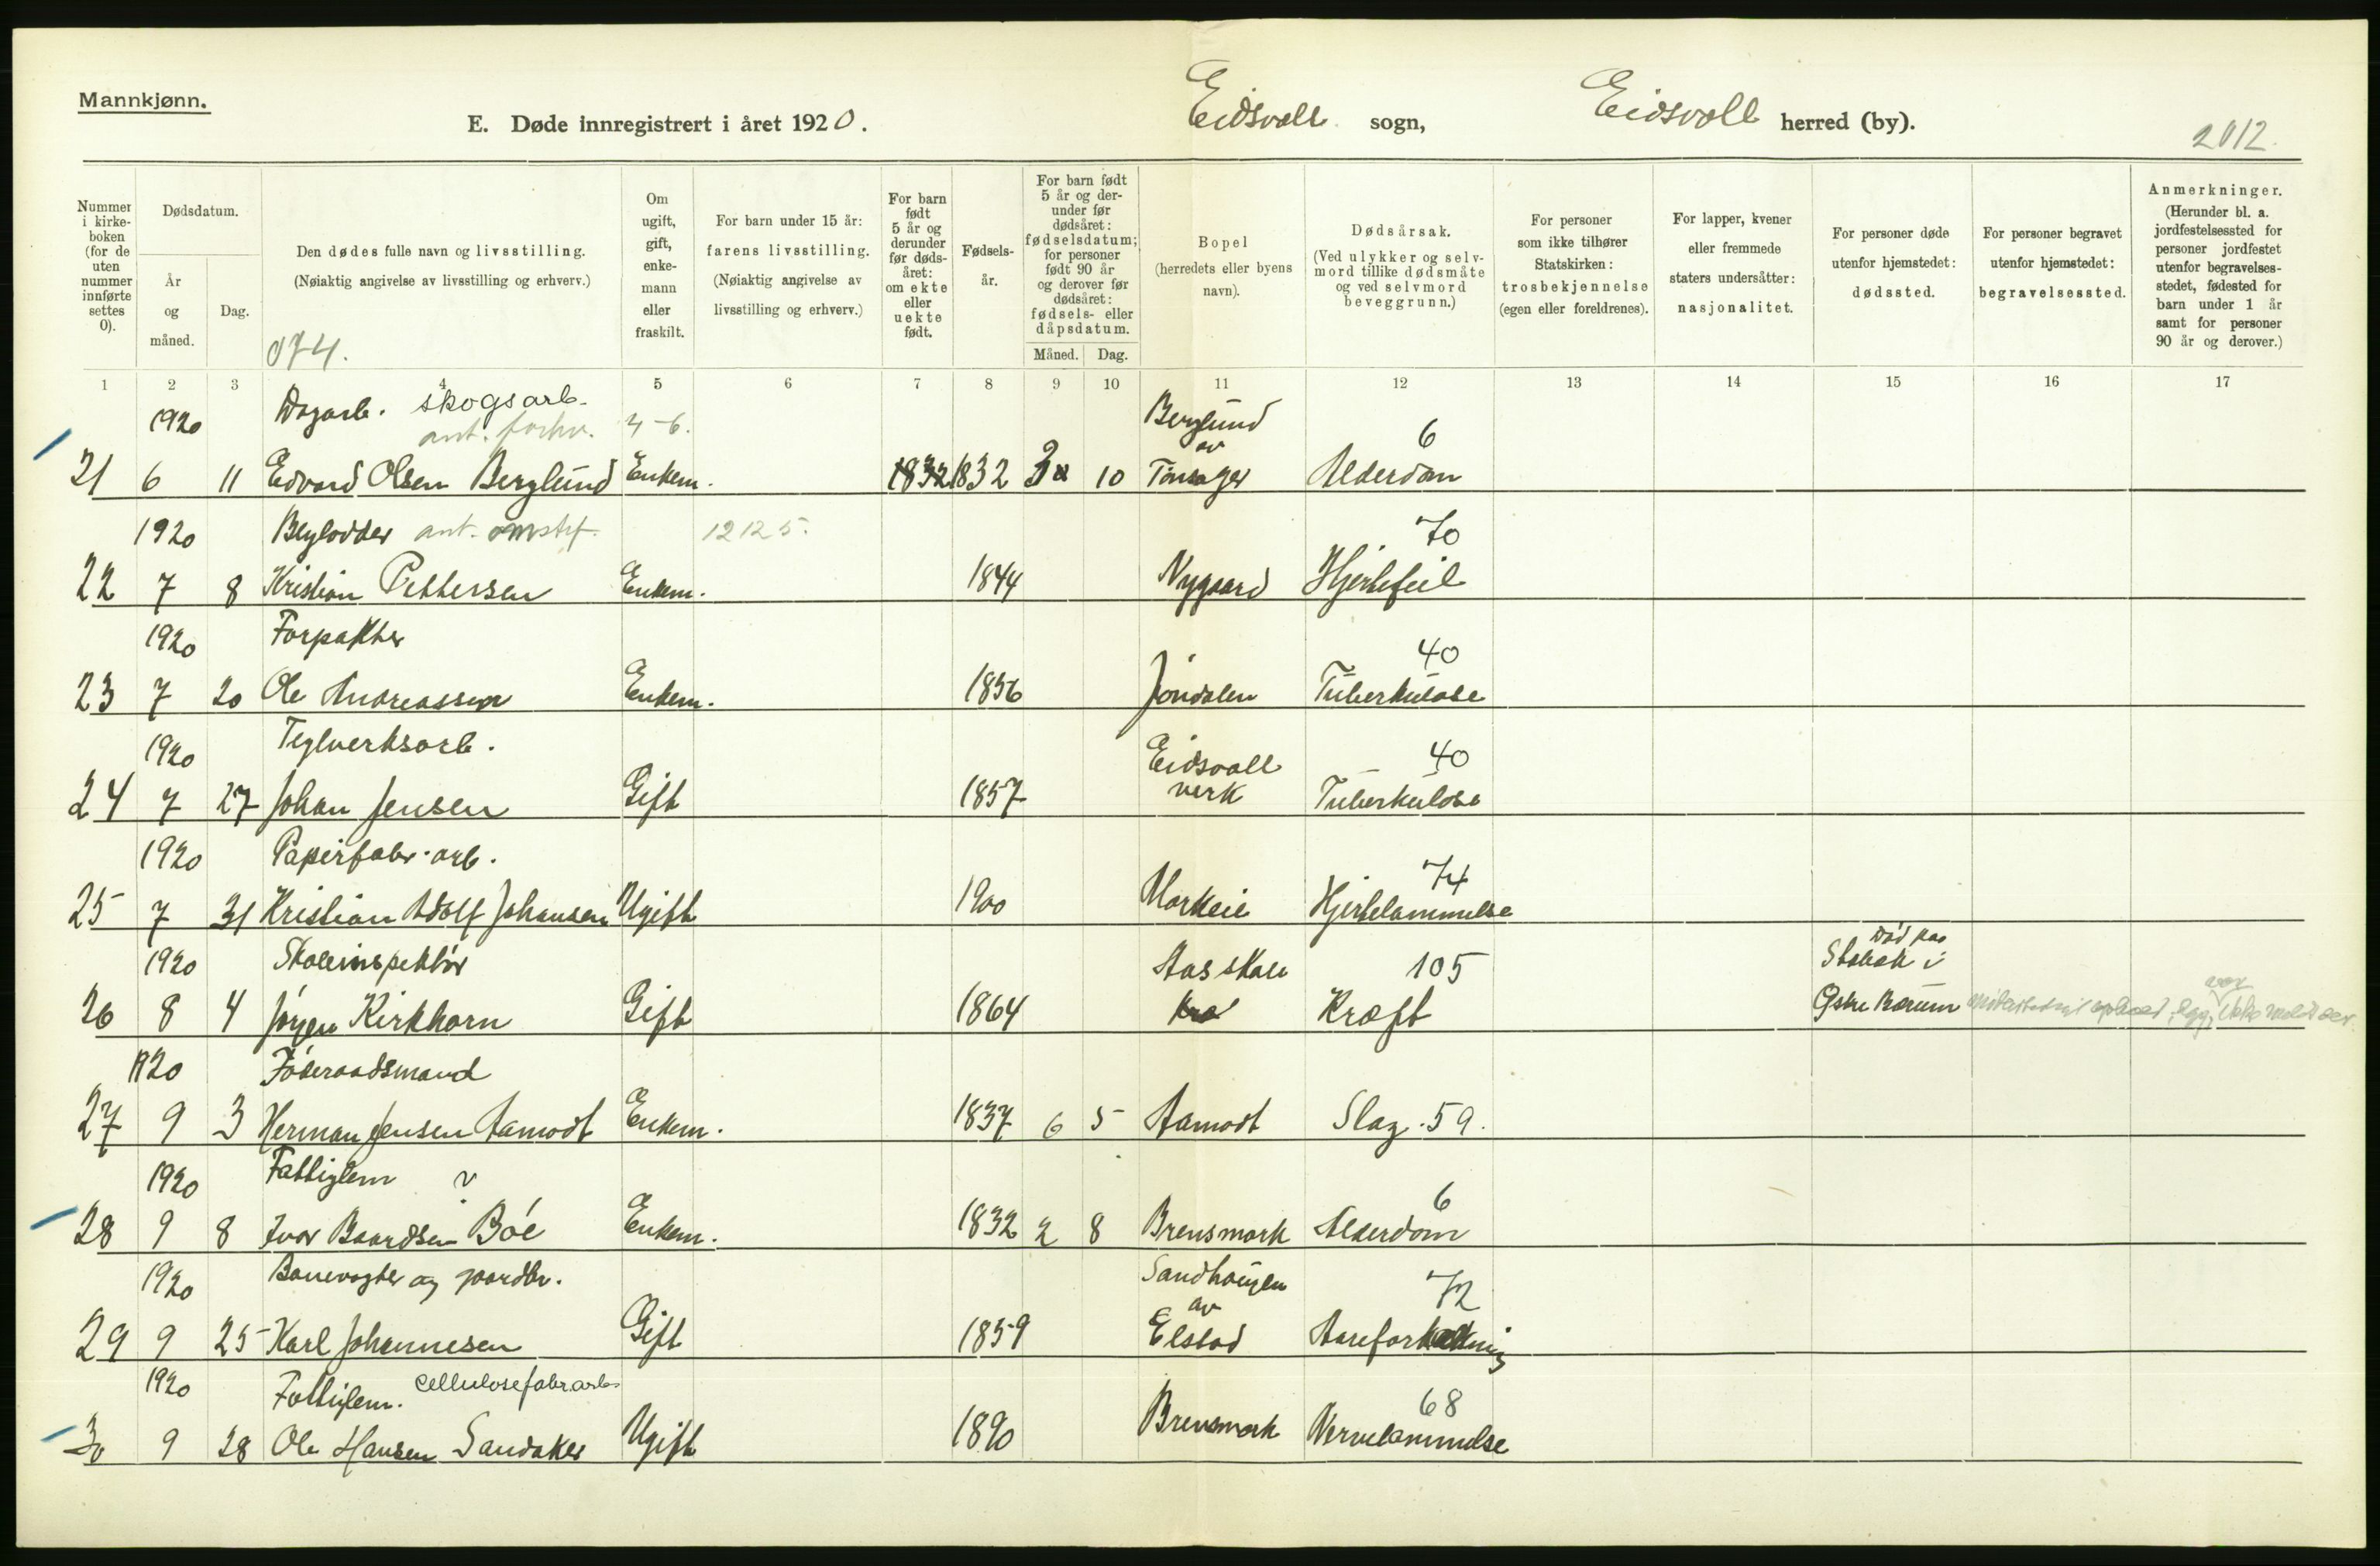 Mannkjønn.
E. Døde innregistrert i året 1920.
Eidsvoll sogn,
Eidsvoll herred (by).
2012.
Nummer i kirkeboken (for de uten nummer innførte settes 0).
Dødsdatum.
År og måned.
Dag.
Den dødes fulle navn og livsstilling.
(Nøiaktig angivelse av livsstilling og erhverv.)
074.
Om ugift, gift, enkemann eller fraskilt.
For barn under 15 år:
farens livsstilling.
(Nøiaktig angivelse av livsstilling og erhverv.)
For barn født 5 år og derunder før dødsåret: om ekte eller uekte født.
Fødselsår.
For barn født 5 år og derunder før dødsåret: fødselsdatum; for personer født 90 år og derover før dødsåret: fødsels- eller dåpsdatum.
Måned. Dag.
Bopel
(herredets eller byens navn).
Dødsårsak.
(Ved ulykker og selvmord tillike dødsmåte og ved selvmord beveggrunn.)
For personer som ikke tilhører Statskirken: trosbekjennelse (egen eller foreldrenes).
For lapper, kvener eller fremmede staters undersåtter: nasjonalitet.
For personer døde utenfor hjemstedet: dødssted.
For personer begravet utenfor hjemstedet: begravelsessted.
Anmerkninger.
(Herunder bl. a. jordfestelsessted for personer jordfestet utenfor begravelsesstedet, fødested for barn under 1 år samt for personer 90 år og derover.)
1 2 3 4 5 6 7 8 9 10 11 12 13 14 15 16 17
1920 Dagarb. skogsarb. Berglund
ant. forhv. 4-6. av 6
21 6 11 Edvard Olsen Berglund Enkem. 1832 1832 10 Tønsager Alderdom
1920 Brylodder ant. 12125. 70
22 7 8 Kristian Pettersen Enkem. 1844 Nygaard Hjertefeil
1920 Forpakter 40
23 7 20 Ole Andreassen Enkem. 1856 Jøndalen Tuberkulose
1920 Teglverksarb. Eidsvoll 40
24 7 27 Johan Jensen Gift 1857 verk Tuberkulose
1920 Papirfabr.arb. 74
25 7 31 Kristian Adolf Johansen Ugift 1900 Morkeie Hjertelammelse
1920 Skoleinspektør Aas skole 105 Død paa Stabæk i
26 8 4 Jørgen Kirkhorn Gift 1864 Kræft Østre Bærum
1920 Føderaadsmand
27 9 3 Herman Jensen Aamodt Enkem. 1837 6 5 Aamodt Slag. 59.
1920 Fattiglem ? 6
28 9 8 Ivar Baardsen Bøe Enkem. 1832 2 8 Brensmork Alderdom
1920 Banevogter og gaardbr. Sandhaugen av 72
29 9 25 Karl Johannesen Gift 1859 Elstad Aareforkalkning
1920 Fattiglem. Cellulosefabr.arb. 68
30 9 28 Ole Hansen Sandaker Ugift 1890 Brensmork Nervelammelse